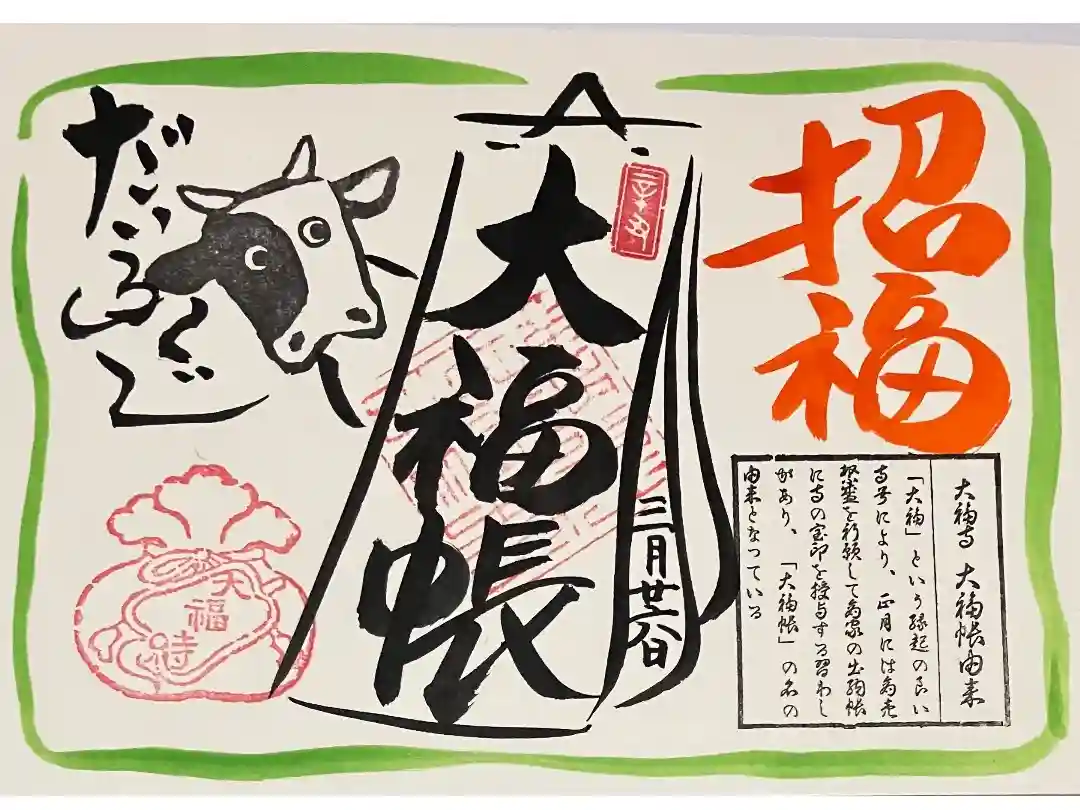 招福
大福帳
三月廿
だいふくじ
大福寺 大福帳由来
「大福」という縁起の良い
寺号により、正月には商売
繁盛を祈願して商家の出納帳
に寺の宝印を授与する習わし
があり、「大福帳」の名の
由来となっている
大福寺